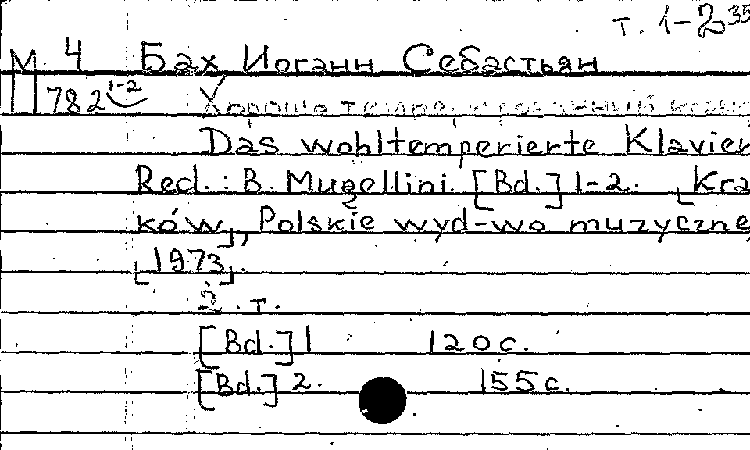 т. 1-2 35
М 4 Бах Иоганн Себастьян
П 782 1-2 Хорошо темперированный
Das wohltemperierte Klavier
Red.: B. Mugellini. [Bd.] 1-2. [Kra
ków], Polskie wyd-wo muzyczne
[1973].
2 т.
[Bd.] 1 120 с.
[Bd.] 2. 155 с.